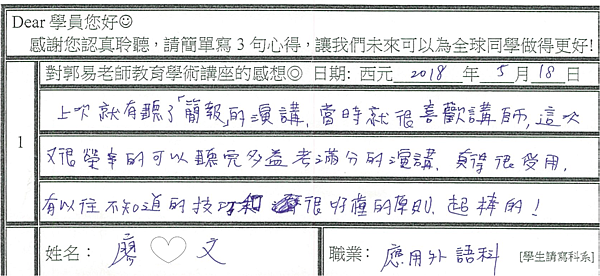 Dear 學員您好☺
感謝您認真聆聽,請簡單寫 3 句心得,讓我們未來可以為全球同學做得更好!
對郭易老師教育學術講座的感想◎ 日期: 西元 2018 年 5 月 18 日
1
上次就有聽了「簡報」的演講,當時就很喜歡講師,這次
又很榮幸的可以聽完多益考滿分的演講,真得很受用,
有以往不知道的技巧和很好懂的原則,超棒的!
姓名: 廖♡文 職業: 應用外語科 [學生請寫科系]